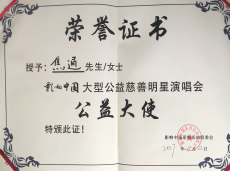 荣誉证书
授予：焦通 先生/女士
影响中国大型公益慈善明星演唱会
公益大使
特颁此证！